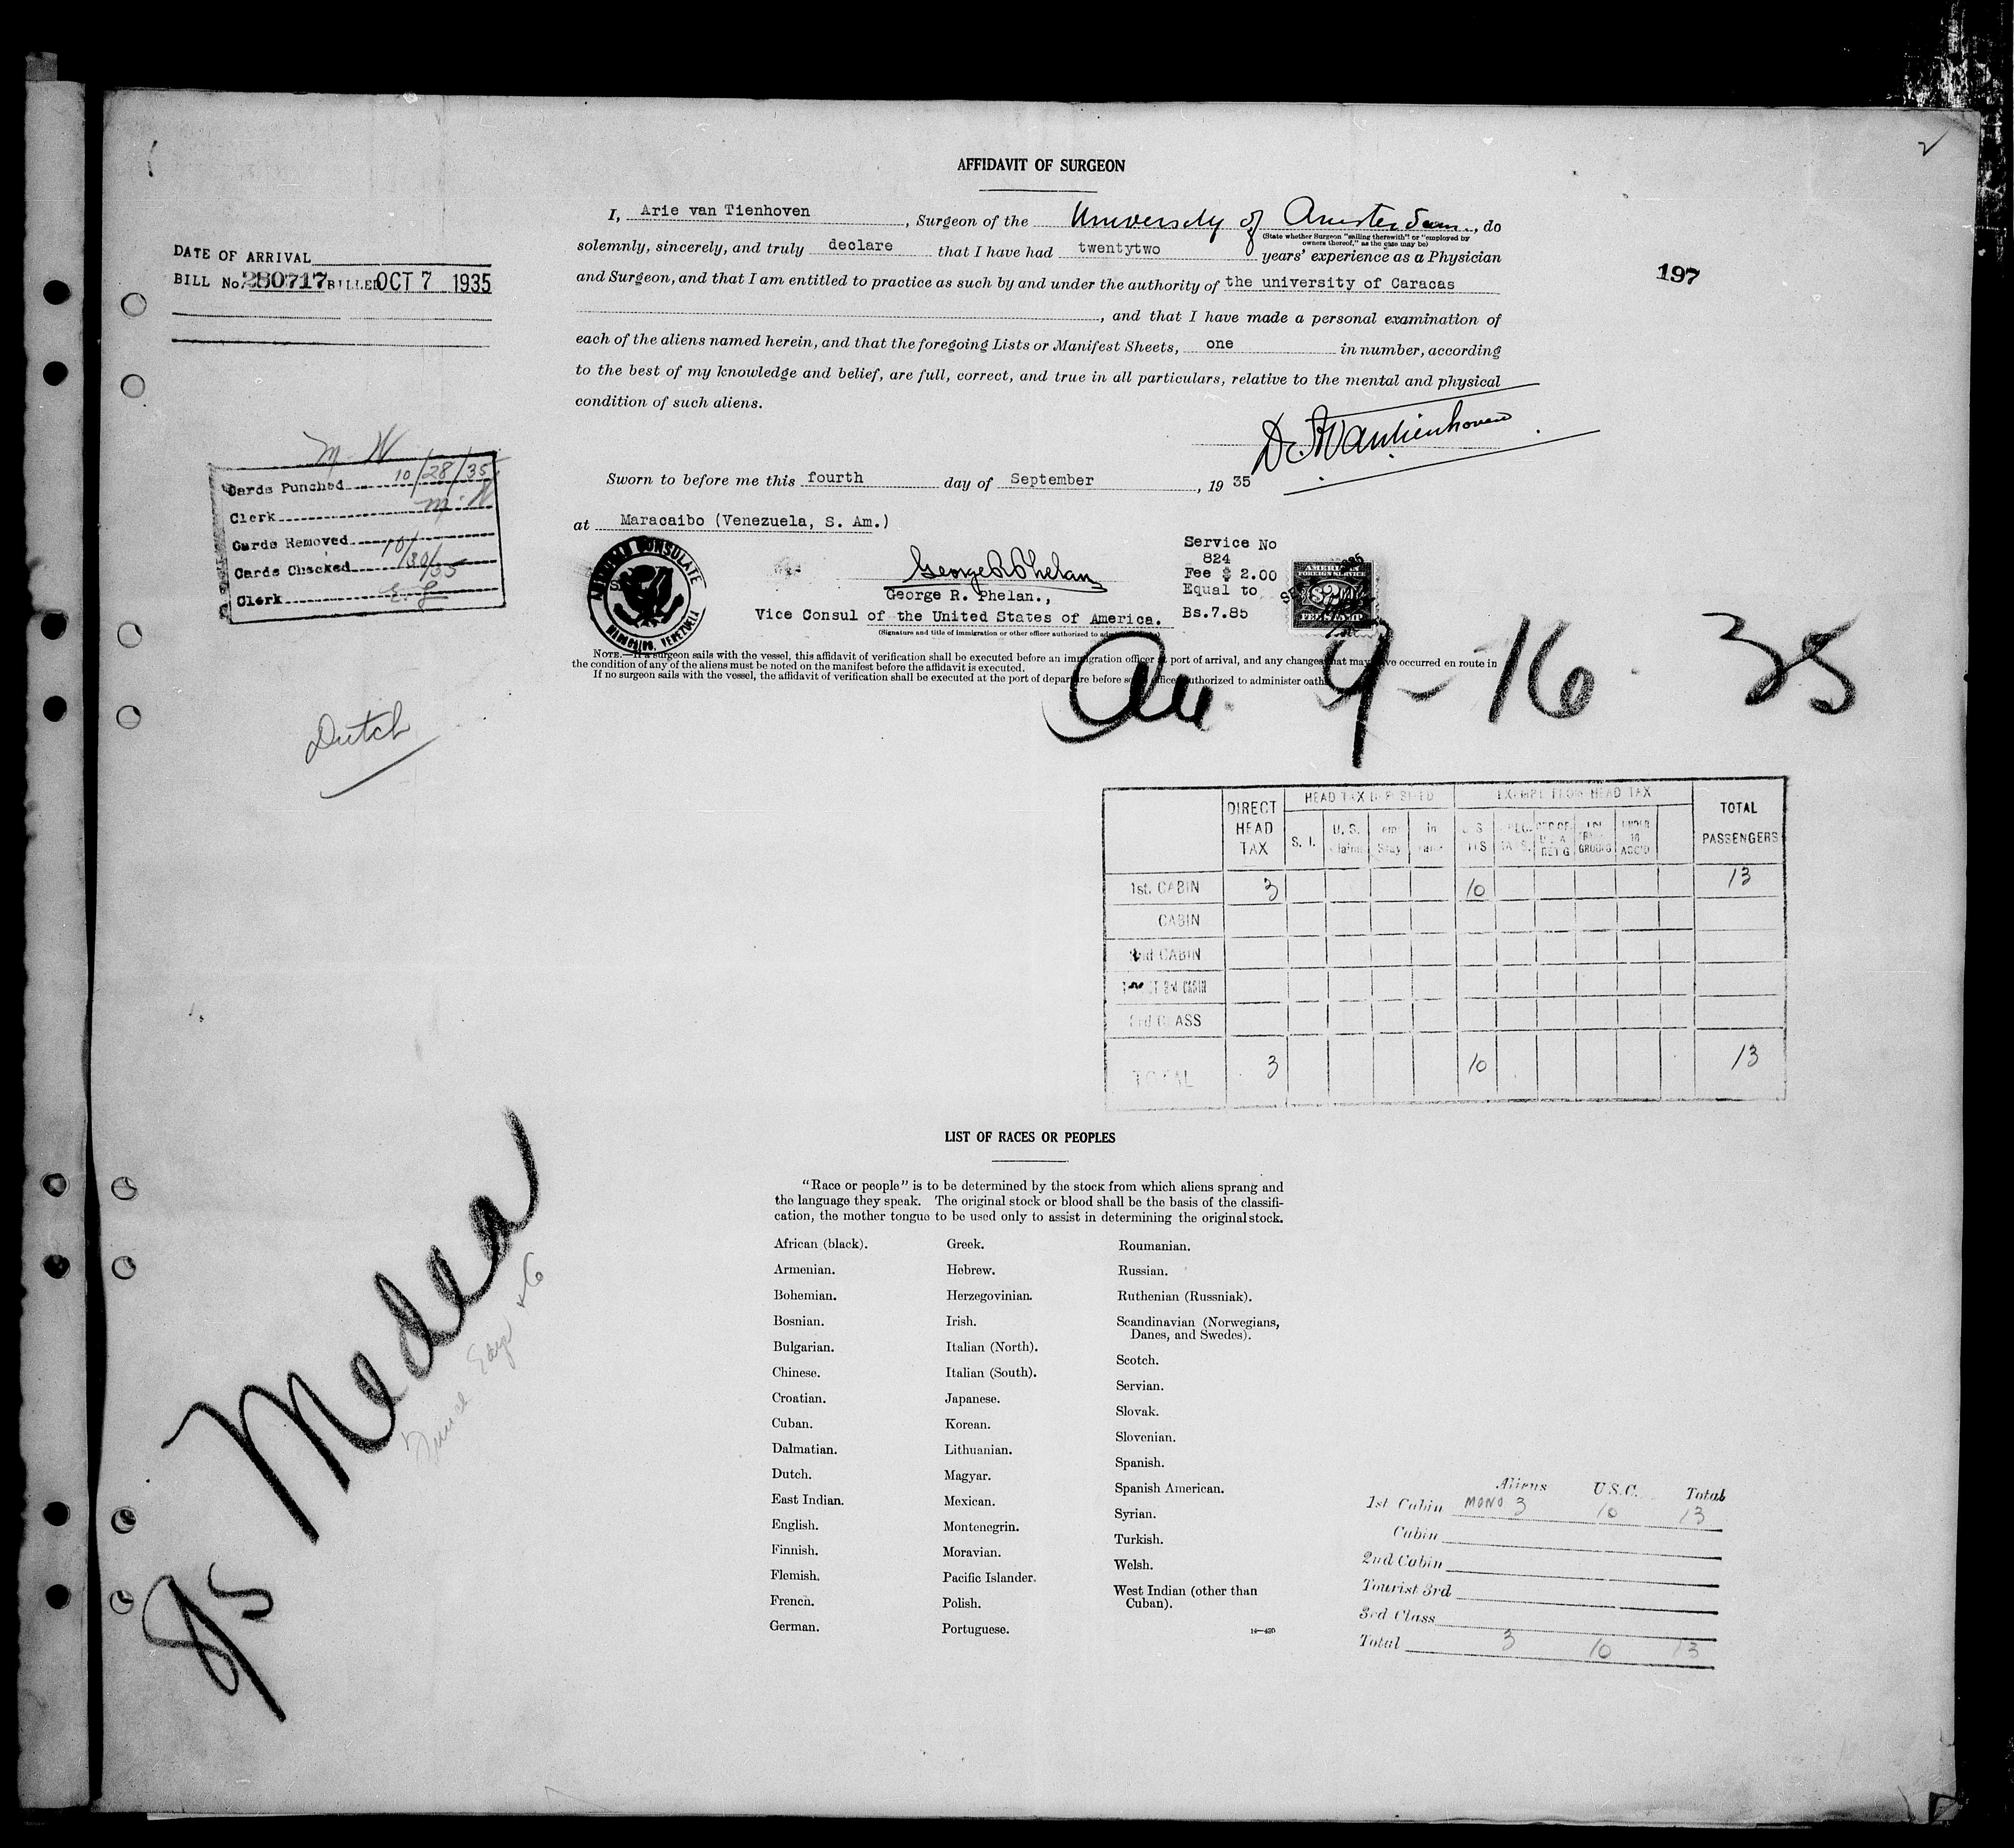 AFFIDAVIT OF SURGEON
I, Arie van Tienhoven, Surgeon of the University of Amsterdam, do
(State whether Surgeon "sailing therewith" or "employed by owners thereof," as the case may be)
solemnly, sincerely, and truly declare that I have had twentytwo years' experience as a Physician
and Surgeon, and that I am entitled to practice as such by and under the authority of the university of Caracas
, and that I have made a personal examination of
each of the aliens named herein, and that the foregoing Lists or Manifest Sheets, one in number, according
to the best of my knowledge and belief, are full, correct, and true in all particulars, relative to the mental and physical
condition of such aliens.
197
DATE OF ARRIVAL
BILL No. 280717 BILLED OCT 7 1935
M-N
Cards Punched 10/28/35
Clerk M.N
Cards Removed
Cards Checked 10/30/35
Clerk E.G
Sworn to before me this fourth day of September, 19 35
at Maracaibo (Venezuela, S. Am.)
AMERICAN CONSULATE
MARACAIBO, VENEZUELA
George R Phelan
George R. Phelan.,
Vice Consul of the United States of America.
(Signature and title of immigration or other officer authorized to
Service No
824
Fee $ 2.00
Equal to
Bs.7.85
AMERICAN
FOREIGN SERVICE
$2
FEE STAMP
NOTE.—If a surgeon sails with the vessel, this affidavit of verification shall be executed before an immigration officer at port of arrival, and any changes that may have occurred en route in
the condition of any of the aliens must be noted on the manifest before the affidavit is executed.
If no surgeon sails with the vessel, the affidavit of verification shall be executed at the port of departure before some officer authorized to administer oaths
9-16-35
Dutch
DIRECT HEAD TAX
HEAD TAX DEPOSITED
EXEMPT FROM HEAD TAX
TOTAL PASSENGERS
1st. CABIN 3 10 13
CABIN
2nd CABIN
3rd CLASS
TOTAL 3 10 13
LIST OF RACES OR PEOPLES
"Race or people" is to be determined by the stock from which aliens sprang and
the language they speak. The original stock or blood shall be the basis of the classifi-
cation, the mother tongue to be used only to assist in determining the original stock.
African (black).
Armenian.
Bohemian.
Bosnian.
Bulgarian.
Chinese.
Croatian.
Cuban.
Dalmatian.
Dutch.
East Indian.
English.
Finnish.
Flemish.
French.
German.
Greek.
Hebrew.
Herzegovinian.
Irish.
Italian (North).
Italian (South).
Japanese.
Korean.
Lithuanian.
Magyar.
Mexican.
Montenegrin.
Moravian.
Pacific Islander.
Polish.
Portuguese.
Roumanian.
Russian.
Ruthenian (Russniak).
Scandinavian (Norwegians,
Danes, and Swedes).
Scotch.
Servian.
Slovak.
Slovenian.
Spanish.
Spanish American.
Syrian.
Turkish.
Welsh.
West Indian (other than
Cuban).
14—430
Medea
Aliens U.S.C. Total
1st Cabin MONO 3 10 13
Cabin
2nd Cabin
Tourist 3rd
3rd Class
Total 3 10 13